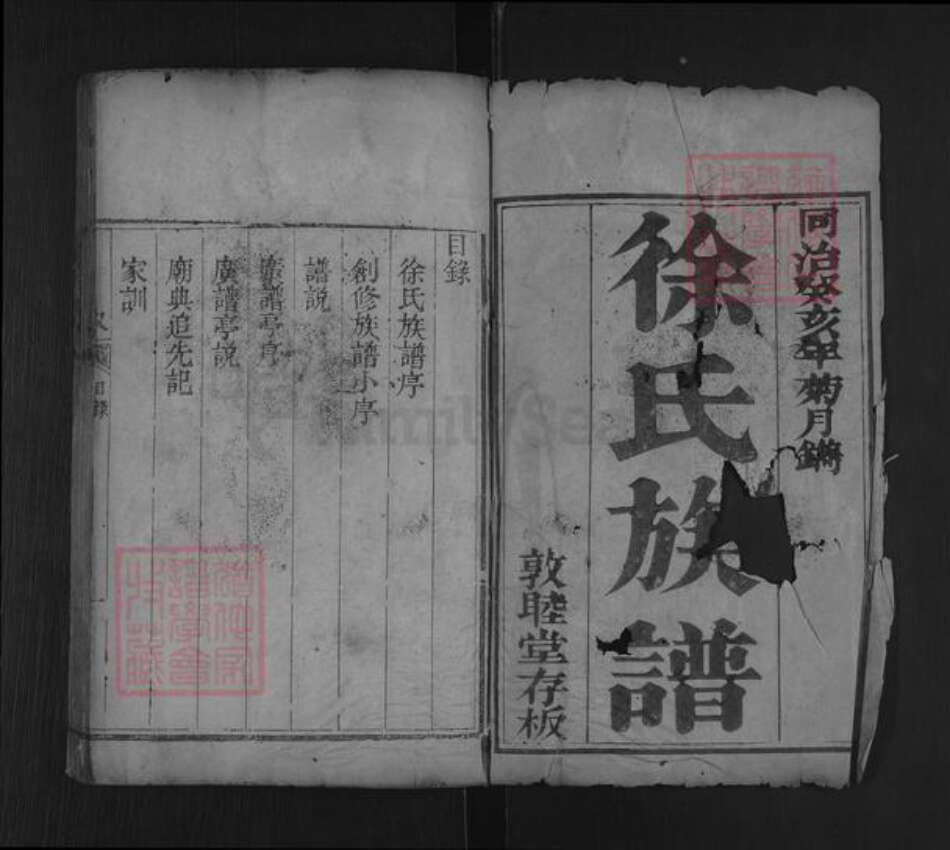 同治癸亥年菊月鐫
徐氏族譜
敦睦堂存板
目錄
徐氏族譜序
創修族譜小序
譜説
譜亭序
廣譜亭説
廟典追先記
家訓
目錄